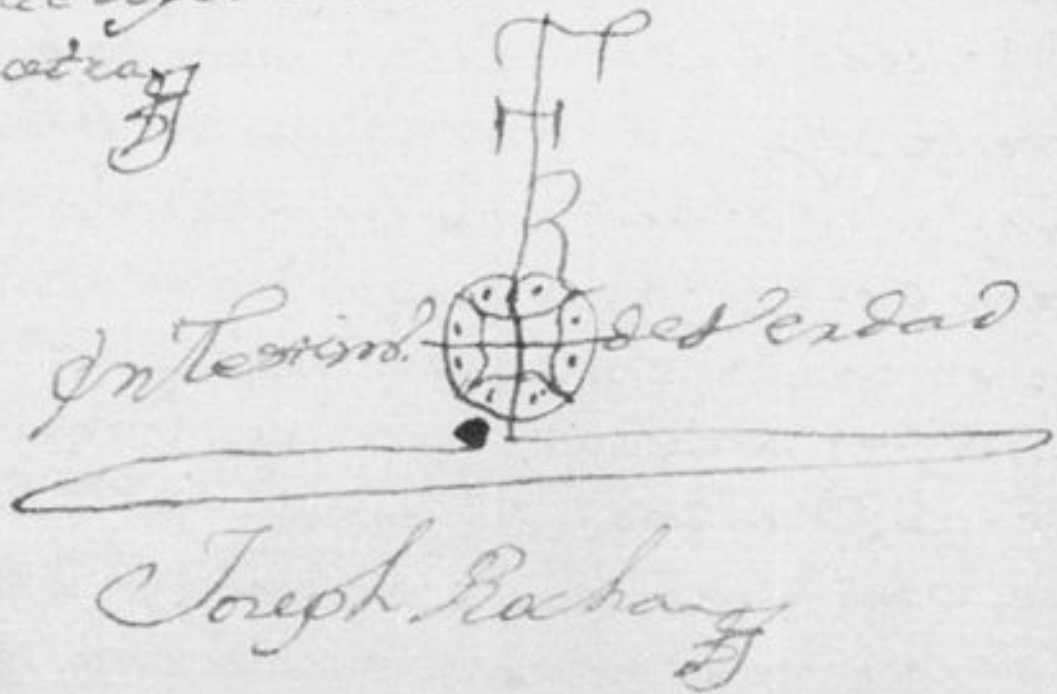 otra
JHR
En Testim.º de Verdad
Joseph Rocha